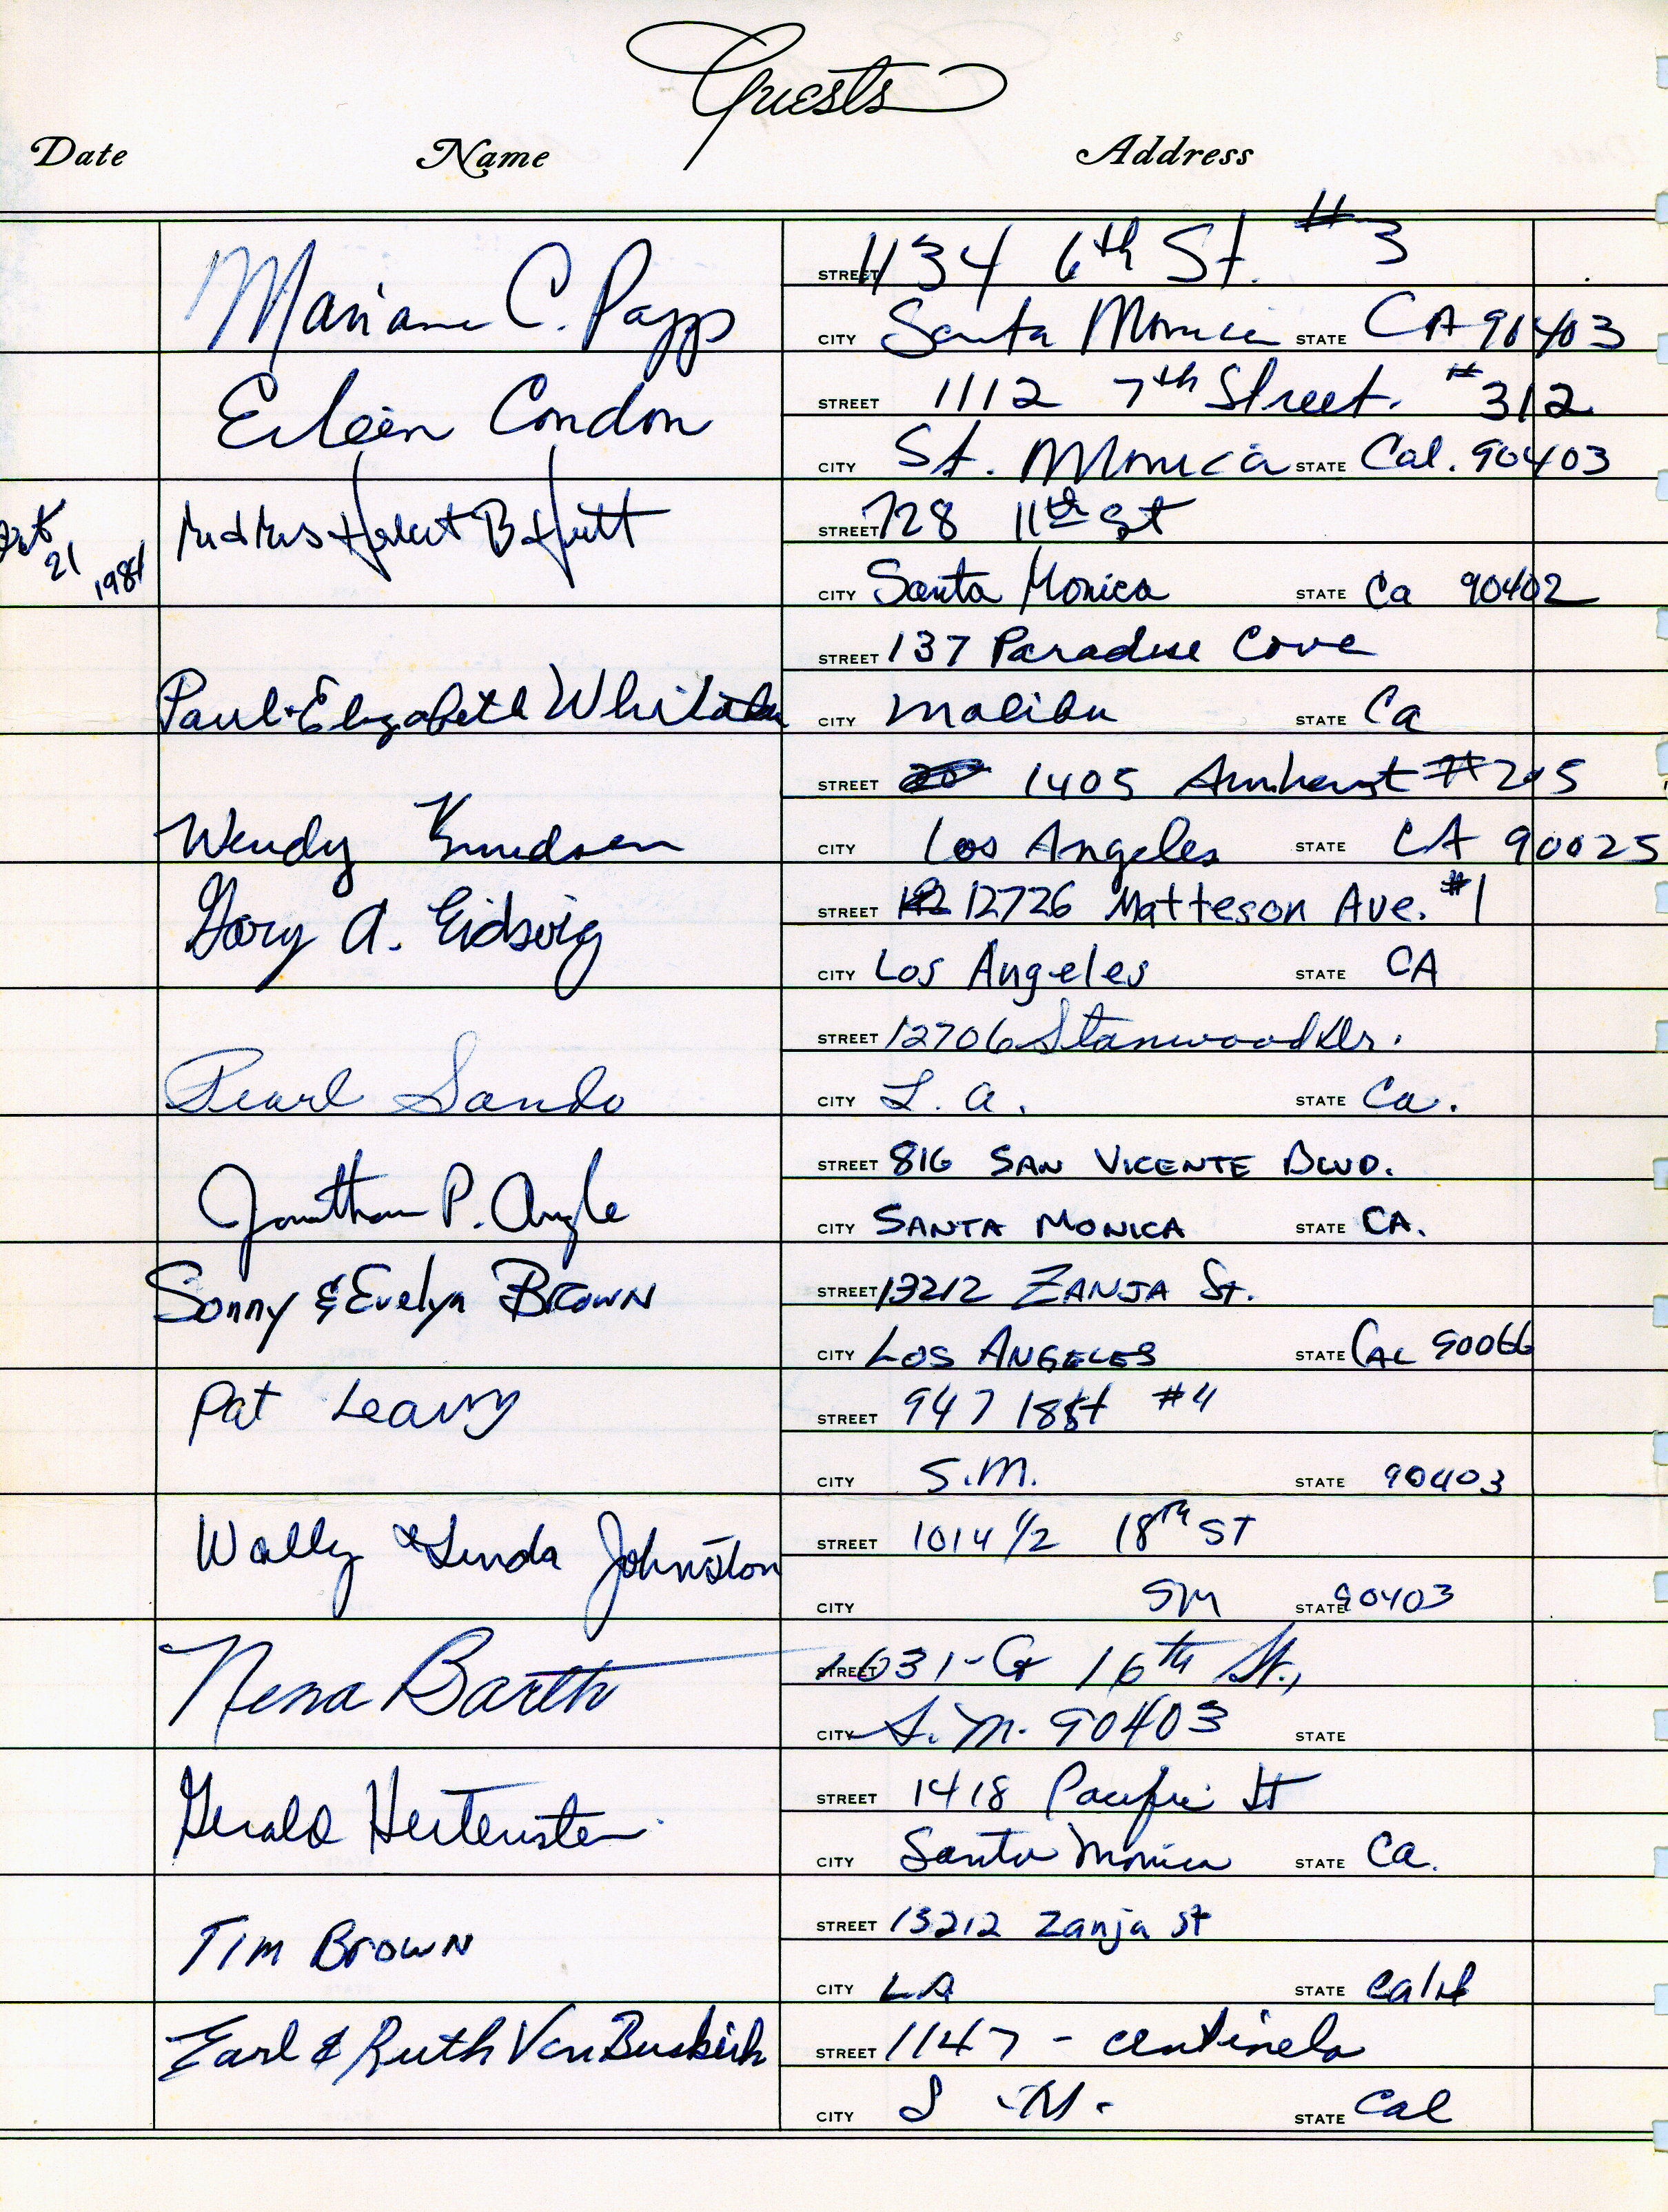 Guests
Date Name Address
STREET 1134 6th St. #3
Marianne C. Papp
CITY Santa Monica STATE CA 90403
STREET 1112 7th Street. #312
Eileen Condon
CITY St. Monica STATE Cal. 90403
Oct 21 1984
Mr and Mrs Herbert B Hutt
STREET 728 11th St
CITY Santa Monica STATE Ca 90402
STREET 137 Paradise Cove
Paul & Elizabeth Whitaker
CITY Malibu STATE Ca
STREET 1405 Amherst #205
Wendy Knudsen
CITY Los Angeles STATE CA 90025
STREET 12726 Matteson Ave. #1
Gary A. Eidsvig
CITY Los Angeles STATE CA
STREET 12706 Stanwood Dr.
Pearl Sando
CITY L.A. STATE Ca.
STREET 816 SAN VICENTE BLVD.
Jonathan P. Angle
CITY SANTA MONICA STATE CA.
Sonny & Evelyn BROWN
STREET 13212 ZANJA ST.
CITY LOS ANGELES STATE CAL 90066
Pat Leavy
STREET 947 18 St #4
CITY S.M. STATE 90403
STREET 1014 1/2 18TH ST
Wally & Linda Johnston
CITY SM STATE 90403
STREET 1031-G 16th St.,
Nena Barth
CITY S.M. 90403 STATE
STREET 1418 Pacific St
Gerald Hertenstein
CITY Santa Monica STATE Ca.
STREET 13212 Zanja St
Tim BROWN
CITY LA STATE Calif
Earl & Ruth VanBuskirk
STREET 1147 - Centinela
CITY S.M. STATE Cal